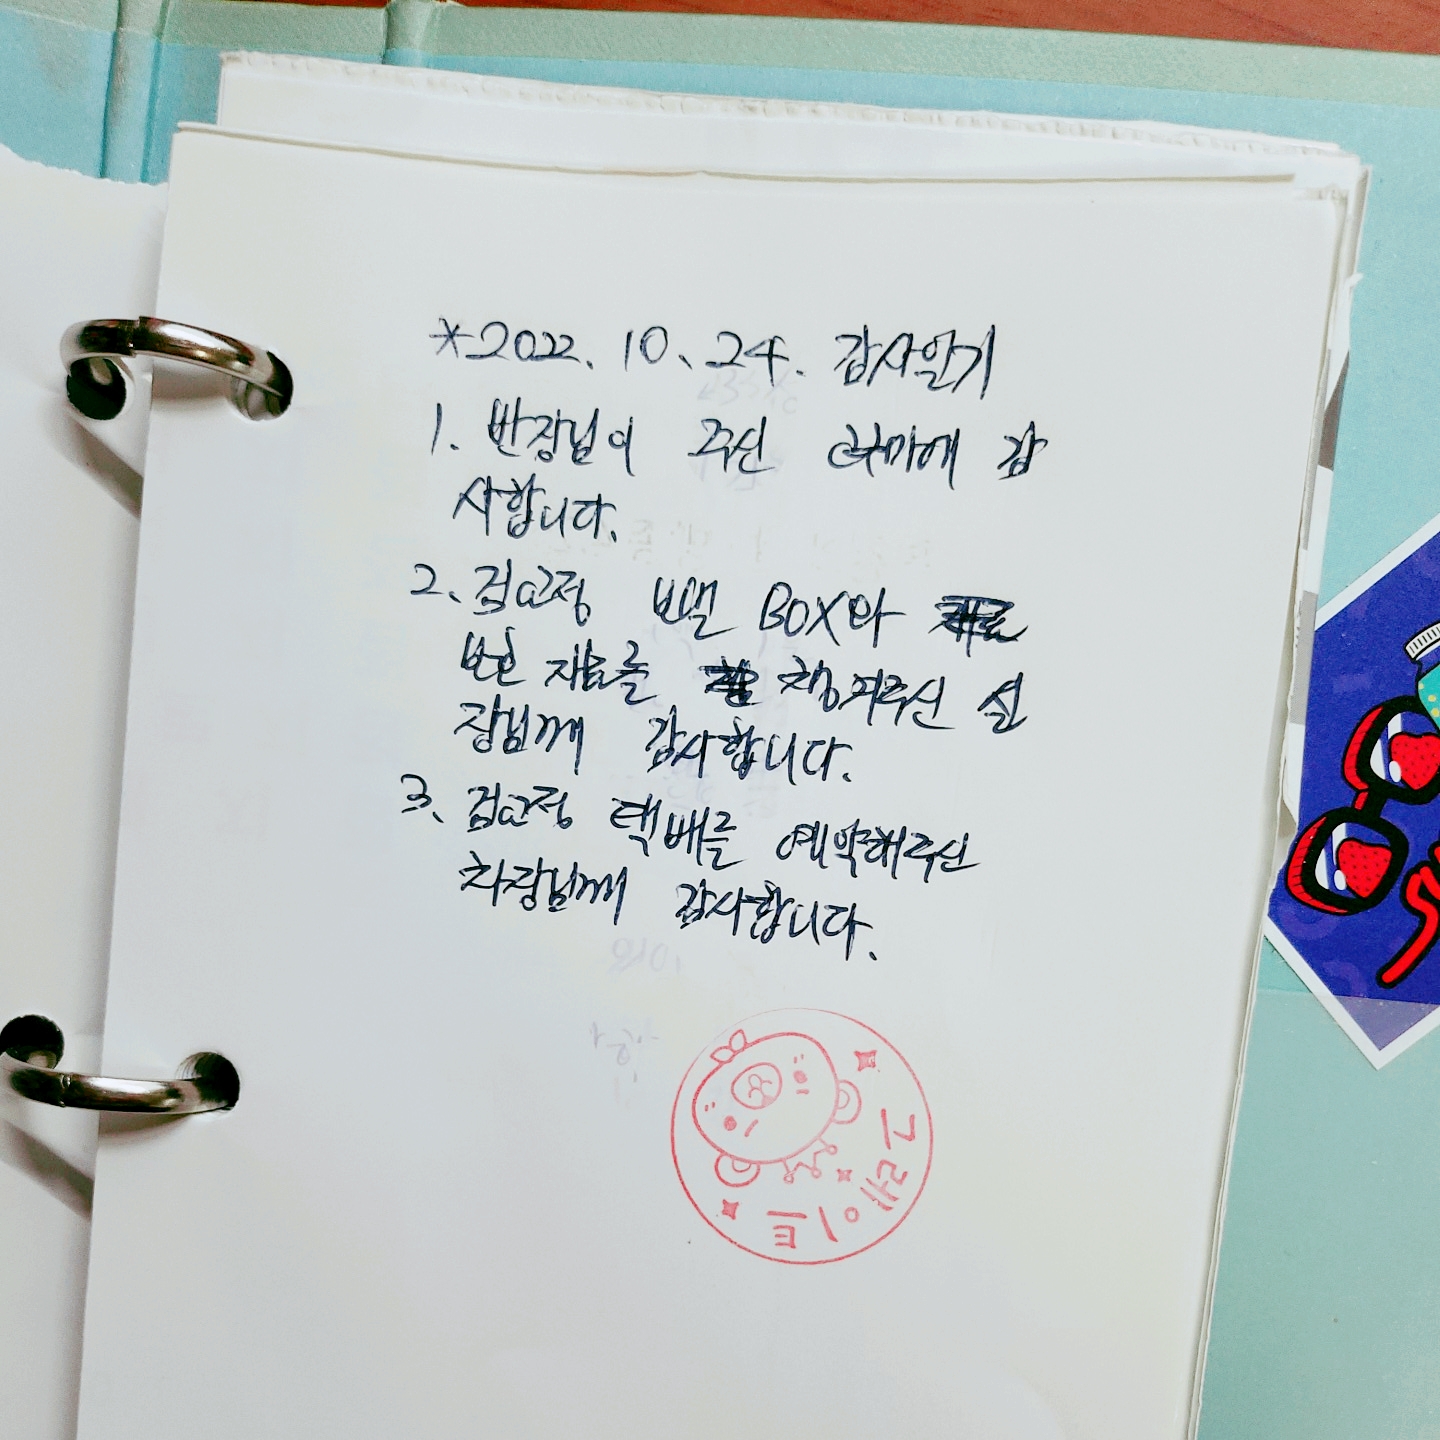 *2022. 10. 24. 감사일기
1. 반장님이 주신 고구마에 감
사합니다.
2. 검교정 보낼 BOX와
보안 자료를 챙겨주신 실
장님께 감사합니다.
3. 검교정 택배를 예약해주신
차장님께 감사합니다.
그레이트